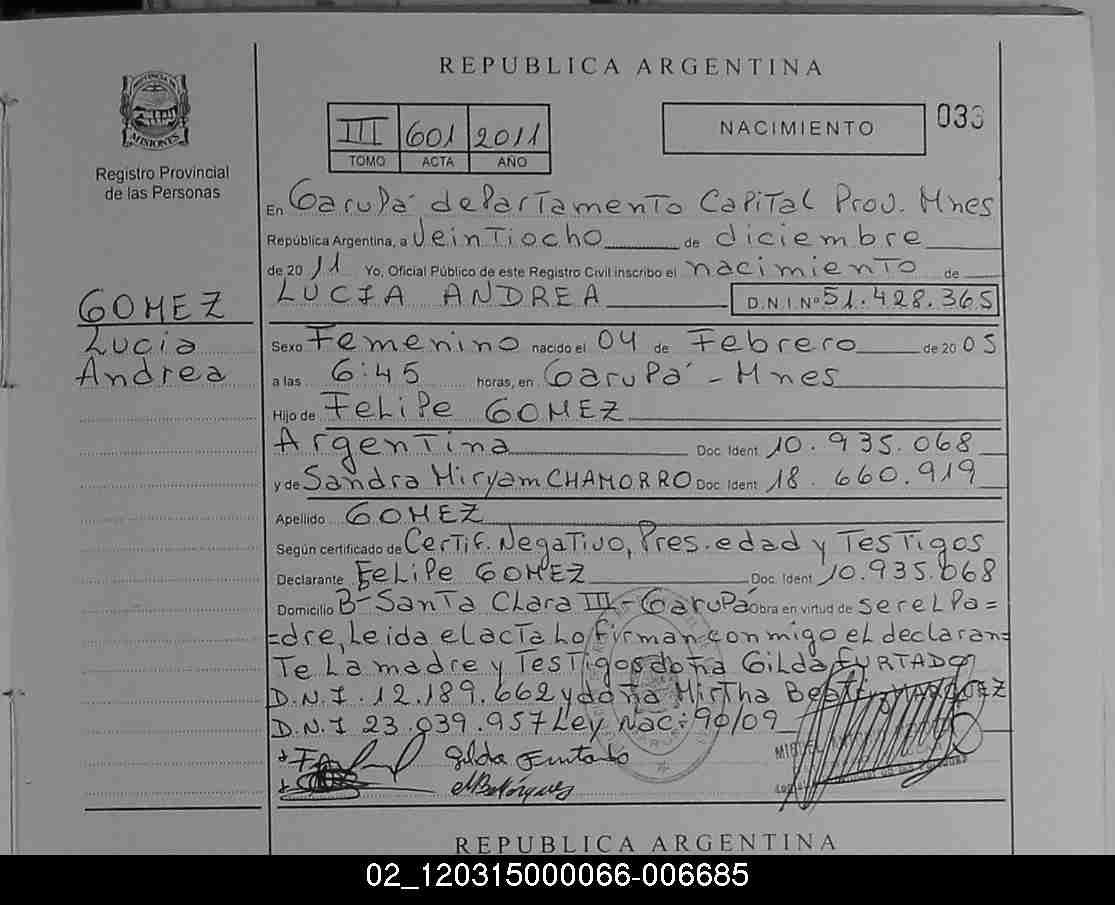 REPUBLICA ARGENTINA
PROVINCIA DE
MISIONES
Registro Provincial
de las Personas
III 601 2011
TOMO ACTA AÑO
NACIMIENTO
033
GOMEZ
Lucia
Andrea
En Garupá departamento Capital Prov. Mnes
República Argentina, a Veintiocho de diciembre
de 20 11 Yo, Oficial Público de este Registro Civil inscribo el nacimiento de
LUCIA ANDREA D.N.I.Nº 51.428.365
Sexo Femenino nacido el 04 de Febrero de 20 05
a las 6:45 horas, en Garupá - Mnes
Hijo de Felipe GOMEZ
Argentina Doc. Ident. 10.935.068
y de Sandra Miryam CHAMORRO Doc. Ident. 18.660.919
Apellido GOMEZ
Según certificado de Certif. Negativo, Pres. edad y Testigos
Declarante Felipe GOMEZ Doc. Ident. 10.935.068
Domicilio B- Santa Clara III - Garupá Obra en virtud de ser el Pa=
=dre, Leida el acta Lo firman conmigo el declaran=
Te La madre y Testigos doña Gilda FURTADO
D.N.I. 12.189.662 y doña Mirtha Beatriz MARQUEZ
D.N.I 23.039.957 Ley Nac: 90/09
Gilda Furtado
REPUBLICA ARGENTINA
02_120315000066-006685